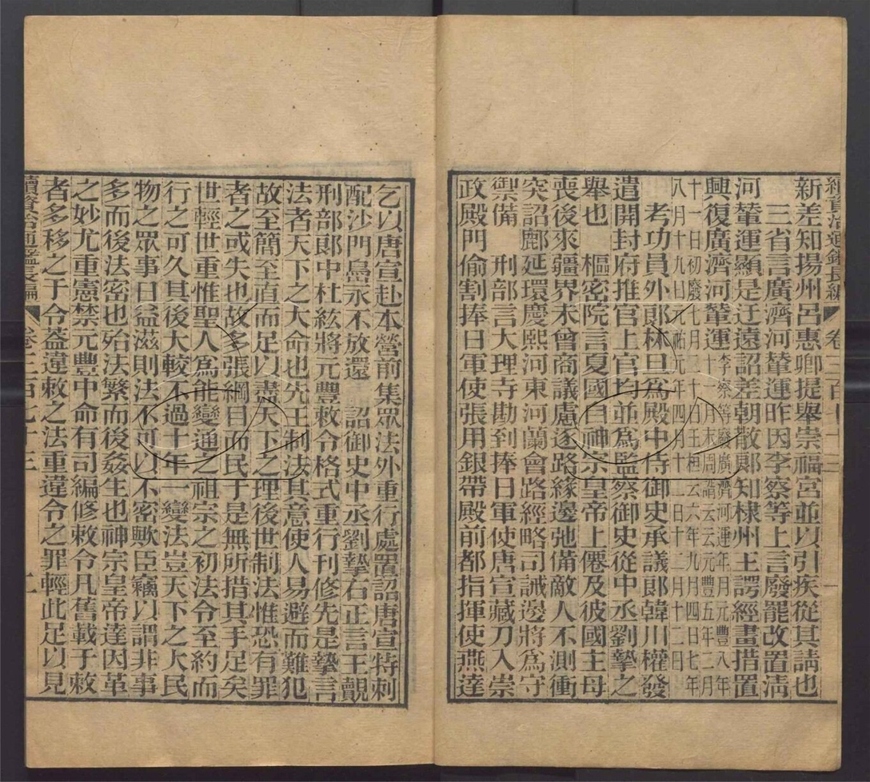 續資治通鑑長編 卷三百七十三 一
新差知揚州呂惠卿提舉崇福宮並以引疾從其請也
三省言廣濟河輦運昨因李察等上言廢罷改置淸
河輦運顯是迂遠詔差朝散郞知棣州王諤經畫措置
興復廣濟河輦運李察等廢廣濟河運年月元豐八年
十一月末周諝云云元豐五年二月
十一日初廢七月二十日王桓云云六年九月四日七年
八月十九日元祐元年四月十二日十二月十二日
考功員外郞林旦爲殿中侍御史承議郞韓川權發
遣開封府推官上官均並爲監察御史從中丞劉摯之
舉也 樞密院言夏國自神宗皇帝上僊及彼國主母
喪後來疆界未曾商議慮逐路緣邊弛備敵人不測衝
突詔鄜延環慶熙河東河蘭會路經略司誡邊將爲守
禦備 刑部言大理寺勘到捧日軍使唐宣藏刀入崇
政殿門偷割捧日軍使張用銀帶殿前都指揮使燕達
乞以唐宣赴本營前集眾法外重行處置詔唐宣特刺
配沙門島永不放還 詔御史中丞劉摯右正言王覿
刑部郞中杜紘將元豐敕令格式重行刊修先是摯言
法者天下之大命也先王制法其意使人易避而難犯
故至簡至直而足以盡天下之理後世制法惟恐有罪
者之或失也故多張綱目而民于是無所措其手足矣
世輕世重惟聖人爲能變通之祖宗之初法令至約而
行之可久其後大較不過十年一變法豈天下之大民
物之眾事日益滋則法不可以不密歟臣竊以謂非事
多而後法密也殆法繁而後姦生也神宗皇帝達因革
之妙尤重憲禁元豐中命有司編修敕令凡舊載于敕
者多移之于令葢違敕之法重違令之罪輕此足以見
續資治通鑑長編 卷三百七十三 二